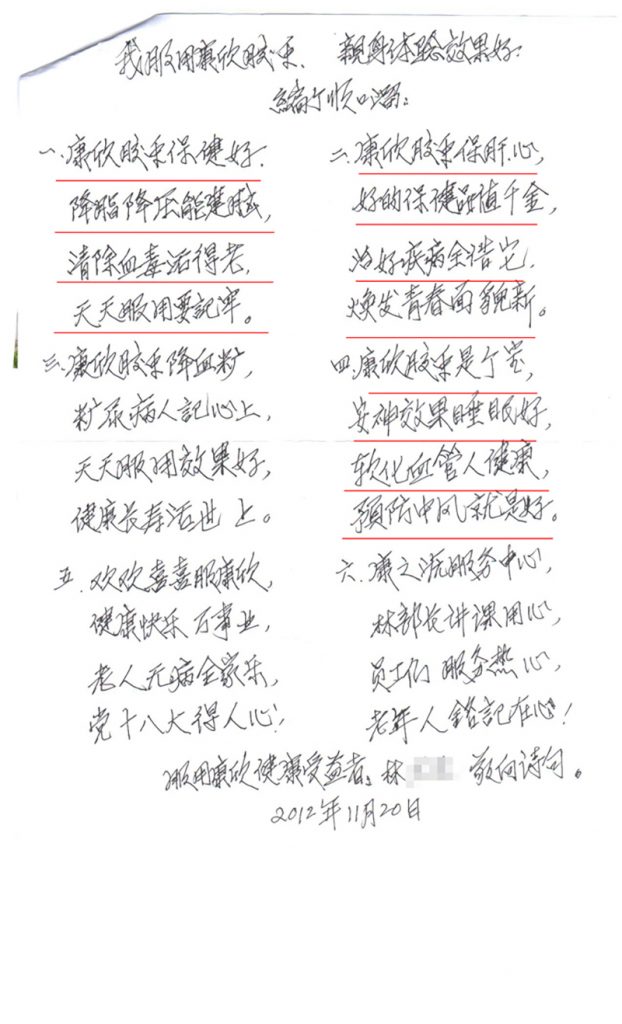 我服用康欣胶束、亲身体验效果好.
编个顺口溜:
一.康欣胶束保健好.
降脂降压能建赋,
清除血毒活得老,
天天服用要記牢。
二.康欣胶束保肝心,
好的保健品值千金,
治好疾病全诰它,
焕发青春面貌新。
三.康欣胶束降血糖,
糖尿病人記心上,
天天服用效果好,
健康长寿活世上。
四.康欣胶束是个宝,
安神效果睡眠好,
软化血管人健康,
预防中风就是好。
五.欢欢喜喜服康欣,
健康快乐万事业,
老人无病全家乐,
党十八大得人心!
六.康之源服务中心,
林部长讲课用心,
员工们服务热心,
老年人铭記在心!
服用康欣健康受益者:林 敬向诗句。
2012年11月20日